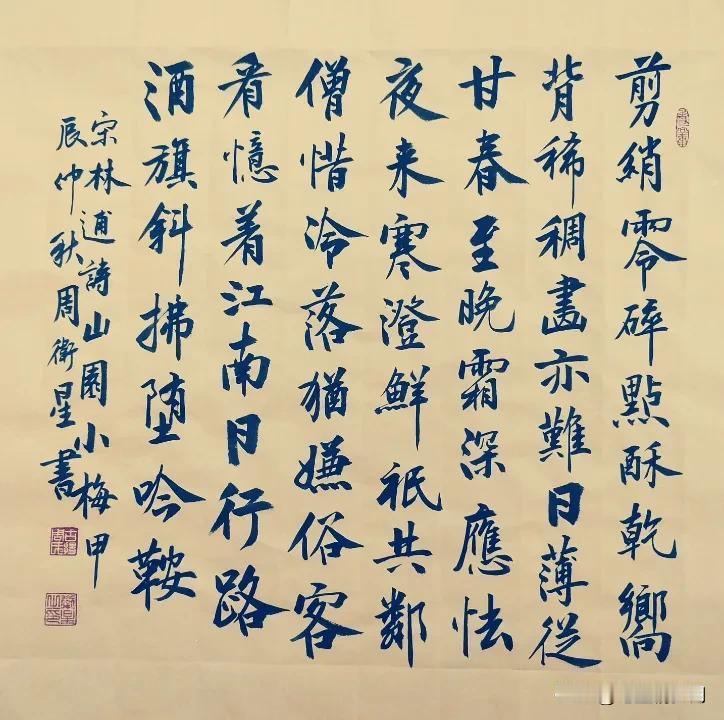 剪綃零碎點酥乾嚮
背稀稠畫亦難日薄從
甘春至晚霜深應怯
夜来寒澄鮮祇共鄰
僧惜冷落猶嫌俗客
看憶着江南日行路
酒旗斜拂堕吟鞍
宋林逋詩山園小梅甲
辰仲秋周衛星書